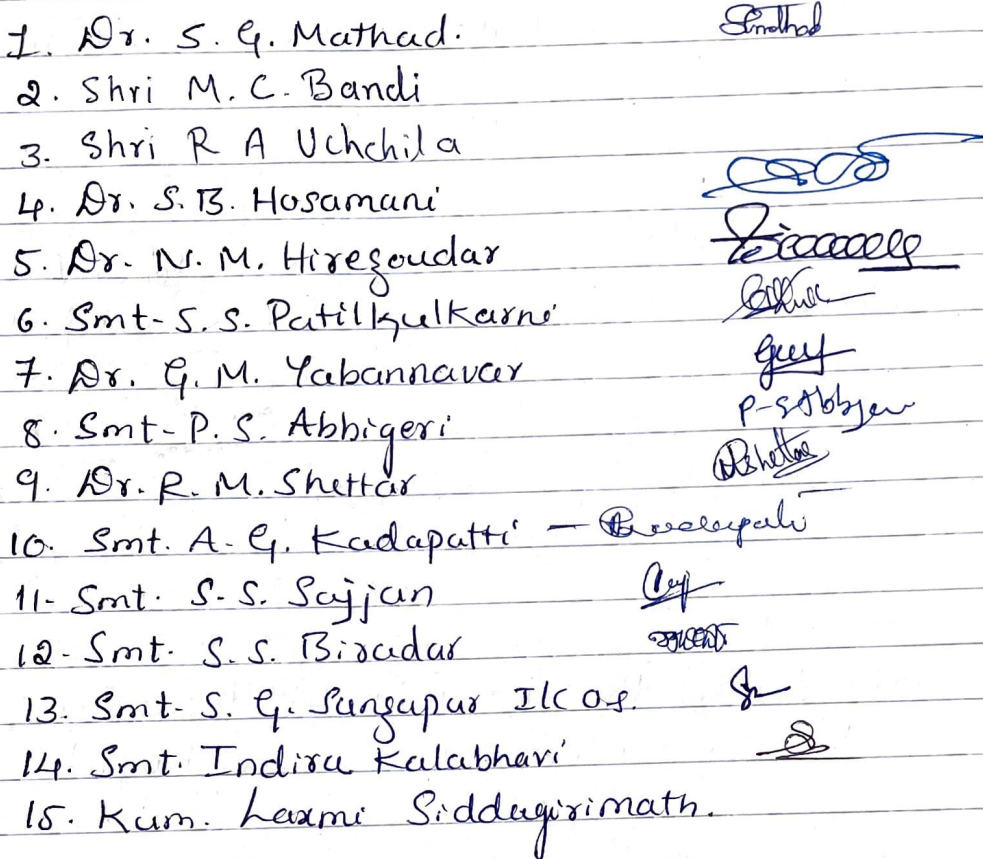 1. Dr. S. G. Mathad.
2. Shri M. C. Bandi
3. Shri R A Uchchila
4. Dr. S. B. Hosamani
5. Dr. N. M. Hiregoudar
6. Smt. S. S. Patilkulkarni
7. Dr. G. M. Yabannavar
8. Smt. P. S. Abbigeri P-SAbbjeri
9. Dr. R. M. Shettar
10. Smt. A. G. Kadapatti -
11- Smt. S. S. Sajjan
12- Smt. S. S. Biradar
13. Smt. S. G. Sangapur
14. Smt. Indira Kalabhavi
15. Kum. Laxmi Siddagirimath.